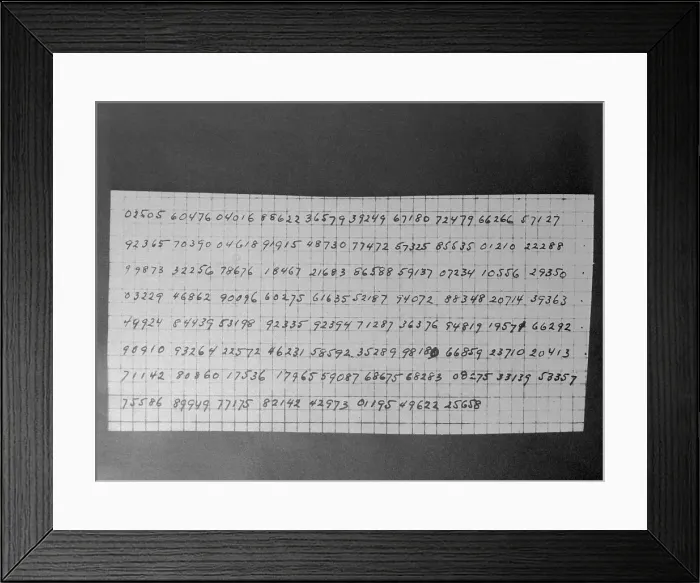 02505 60476 04016 88622 36579 39249 67180 72479 66266 57127
92365 70390 04618 91915 48730 77472 57325 85635 01210 22288
99873 32256 78676 18467 21683 86588 59137 07234 10556 29350
03229 46862 90096 60275 61635 52187 94072 88348 20714 59363
49924 84439 53198 92335 92394 71287 36376 94819 66292
90910 93264 22572 46231 58592 35289 66859 23710 20413
71142 80860 17536 17965 59087 68675 68283 33139 53357
75586 89949 77175 82142 42973 01195 49622 25658